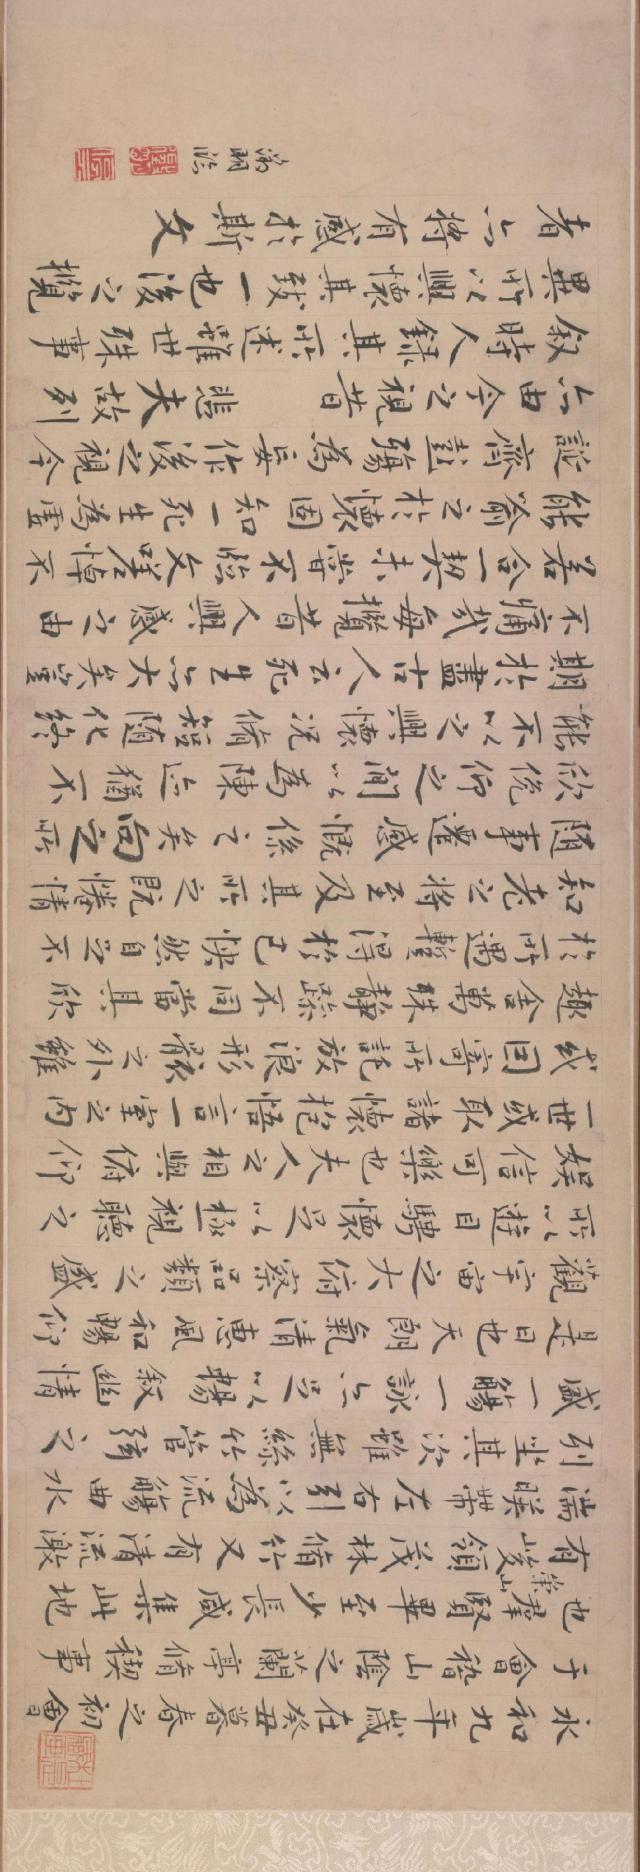 永和九年歲在癸丑暮春之初會
于會稽山陰之蘭亭脩稧事
也群賢畢至少長咸集此地
有崇山峻領茂林脩竹又有清流激
湍暎帶左右引以為流觴曲水
列坐其次雖無絲竹管弦之
盛一觴一詠亦足以暢叙幽情
是日也天朗氣清惠風和暢仰
觀宇宙之大俯察品類之盛
所以遊目騁懷足以極視聽之
娛信可樂也夫人之相與俯仰
一世或取諸懷抱悟言一室之內
或因寄所託放浪形骸之外雖
趣舍萬殊靜躁不同當其欣
於所遇暫得於己怏然自足不
知老之將至及其所之既惓情
隨事遷感慨係之矣向之所
欣俛仰之間以為陳迹猶不
能不以之興懷況脩短隨化終
期於盡古人云死生亦大矣豈
不痛哉每攬昔人興感之由
若合一契未嘗不臨文嗟悼不
能喻之於懷固知一死生為虛
誕齊彭殤為妄作後之視今
亦由今之視昔 悲夫故列
叙時人錄其所述雖世殊事
異所以興懷其致一也後之攬
者亦將有感於斯文
徵明臨